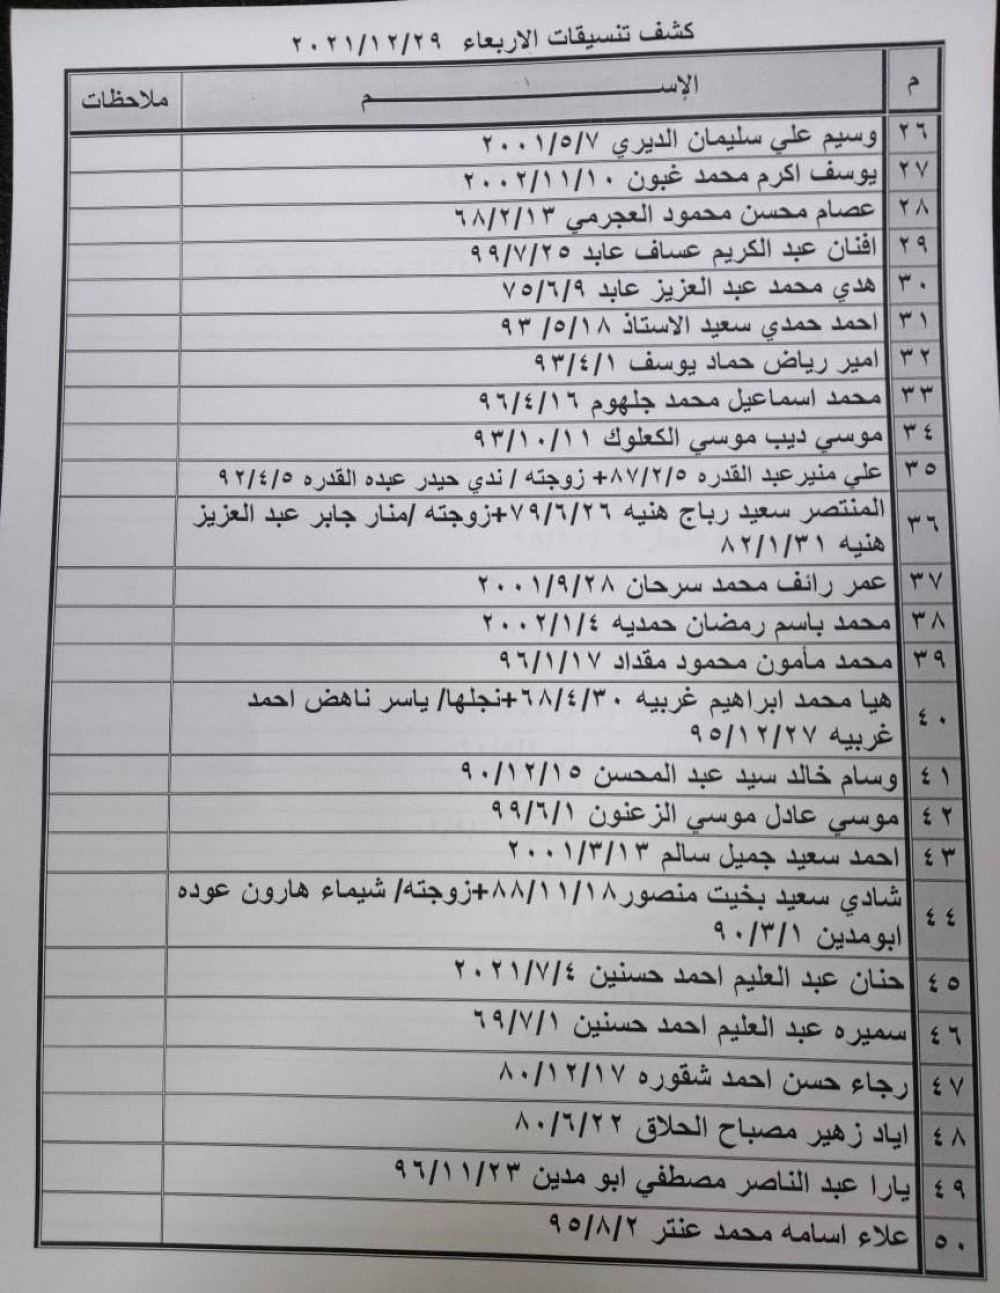 كشف تنسيقات الاربعاء ٢٠٢١/١٢/٢٩
م الإســــــم ملاحظات
٢٦ وسيم علي سليمان الديري ٢٠٠١/٥/٧
٢٧ يوسف اكرم محمد غبون ٢٠٠٢/١١/١٠
٢٨ عصام محسن محمود العجرمي ٦٨/٢/١٣
٢٩ افنان عبد الكريم عساف عابد ٩٩/٧/٢٥
٣٠ هدي محمد عبد العزيز عابد ٧٥/٦/٩
٣١ احمد حمدي سعيد الاستاذ ٩٣/٥/١٨
٣٢ امير رياض حماد يوسف ٩٣/٤/١
٣٣ محمد اسماعيل محمد جلهوم ٩٦/٤/١٦
٣٤ موسي ديب موسي الكعلوك ٩٣/١٠/١١
٣٥ علي منيرعبد القدره ٨٧/٢/٥+ زوجته / ندي حيدر عبده القدره ٩٢/٤/٥
٣٦ المنتصر سعيد رباح هنيه ٧٩/٦/٢٦+زوجته /منار جابر عبد العزيز
هنيه ٨٢/١/٣١
٣٧ عمر رائف محمد سرحان ٢٠٠١/٩/٢٨
٣٨ محمد باسم رمضان حمديه ٢٠٠٢/١/٤
٣٩ محمد مأمون محمود مقداد ٩٦/١/١٧
٤٠ هيا محمد ابراهيم غربيه ٦٨/٤/٣٠+نجلها/ ياسر ناهض احمد
غربيه ٩٥/١٢/٢٧
٤١ وسام خالد سيد عبد المحسن ٩٠/١٢/١٥
٤٢ موسي عادل موسي الزعنون ٩٩/٦/١
٤٣ احمد سعيد جميل سالم ٢٠٠١/٣/١٣
٤٤ شادي سعيد بخيت منصور٨٨/١١/١٨+زوجته/ شيماء هارون عوده
ابومدين ٩٠/٣/١
٤٥ حنان عبد العليم احمد حسنين ٢٠٢١/٧/٤
٤٦ سميره عبد العليم احمد حسنين ٦٩/٧/١
٤٧ رجاء حسن احمد شقوره ٨٠/١٢/١٧
٤٨ اياد زهير مصباح الحلاق ٨٠/٦/٢٢
٤٩ يارا عبد الناصر مصطفي ابو مدين ٩٦/١١/٢٣
٥٠ علاء اسامه محمد عنتر ٩٥/٨/٢